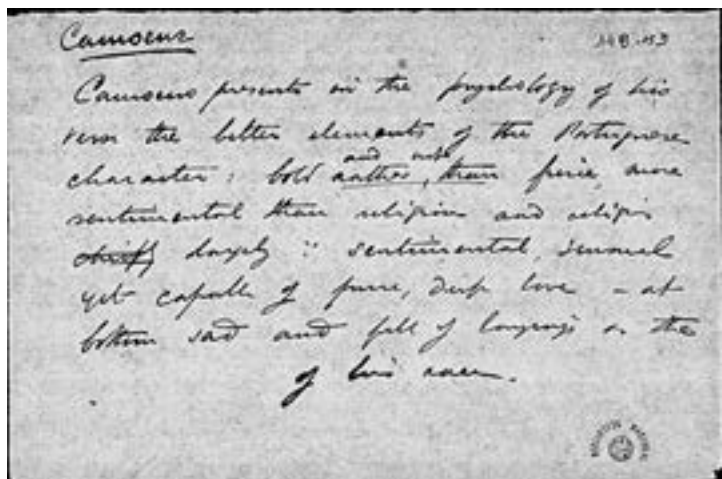 Camoens
14B-53
Camoens presents in the psychology of his
verse the better elements of the Portuguese
character: bold and not
rather than fierce, more
sentimental than religious and religious
largely :: sentimental, sensual
yet capable of pure, deep love – at
bottom sad and full of longings the
of his race.